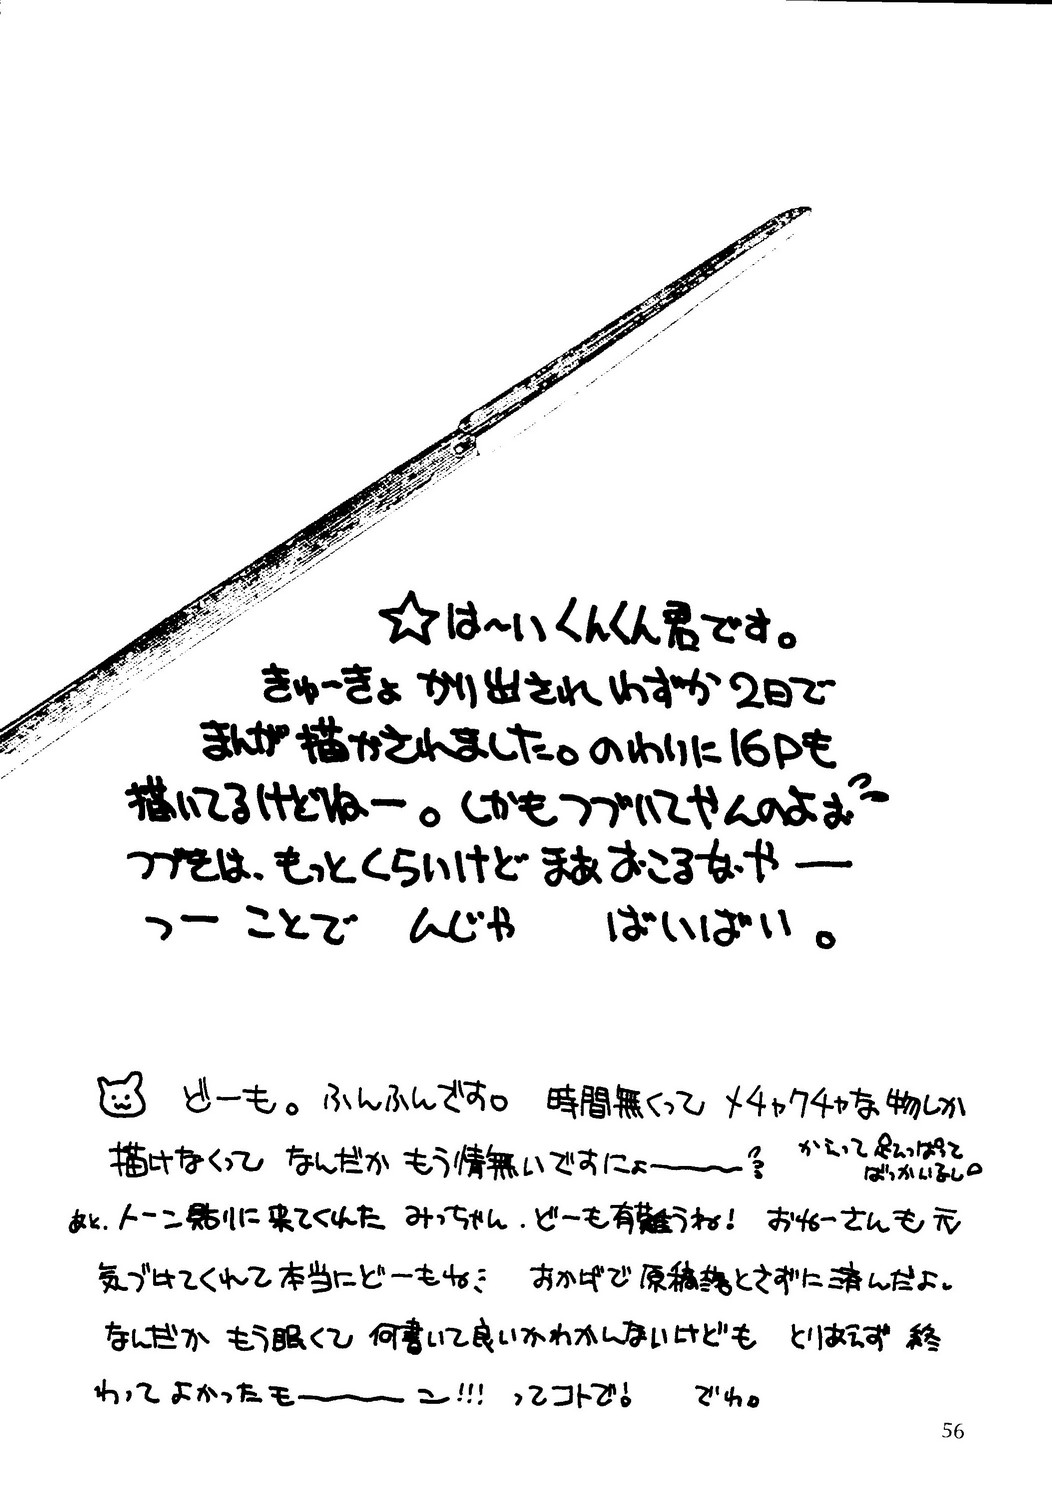 ☆は〜いくんくん君です。
きゅーきょ かり出され わずか2日で
まんが描かされました。のわりに16Pも
描いてるけどねー。しかもつづいてやんのよお
つづきは、もっとくらいけど まあおこるなやー
っー ことで んじゃ ばいばい。
どーも。ふんふんです。 時間無くって メチャクチャな物しか
描けなくって なんだか もう情無いですにょー〜〜
かえって足ひっぱって
ばっかいるし。
あと、トーン貼りに来てくれた みっちゃん、どーも有難うね! おねーさんも元
気づけてくれて本当にどーもね おかげで原稿落とさずに済んだよ。
なんだか もう眠くて 何書いて良いかわかんないけども とりあえず 終
わって よかったモー〜〜ン!!! ってコトで! でわ。
56